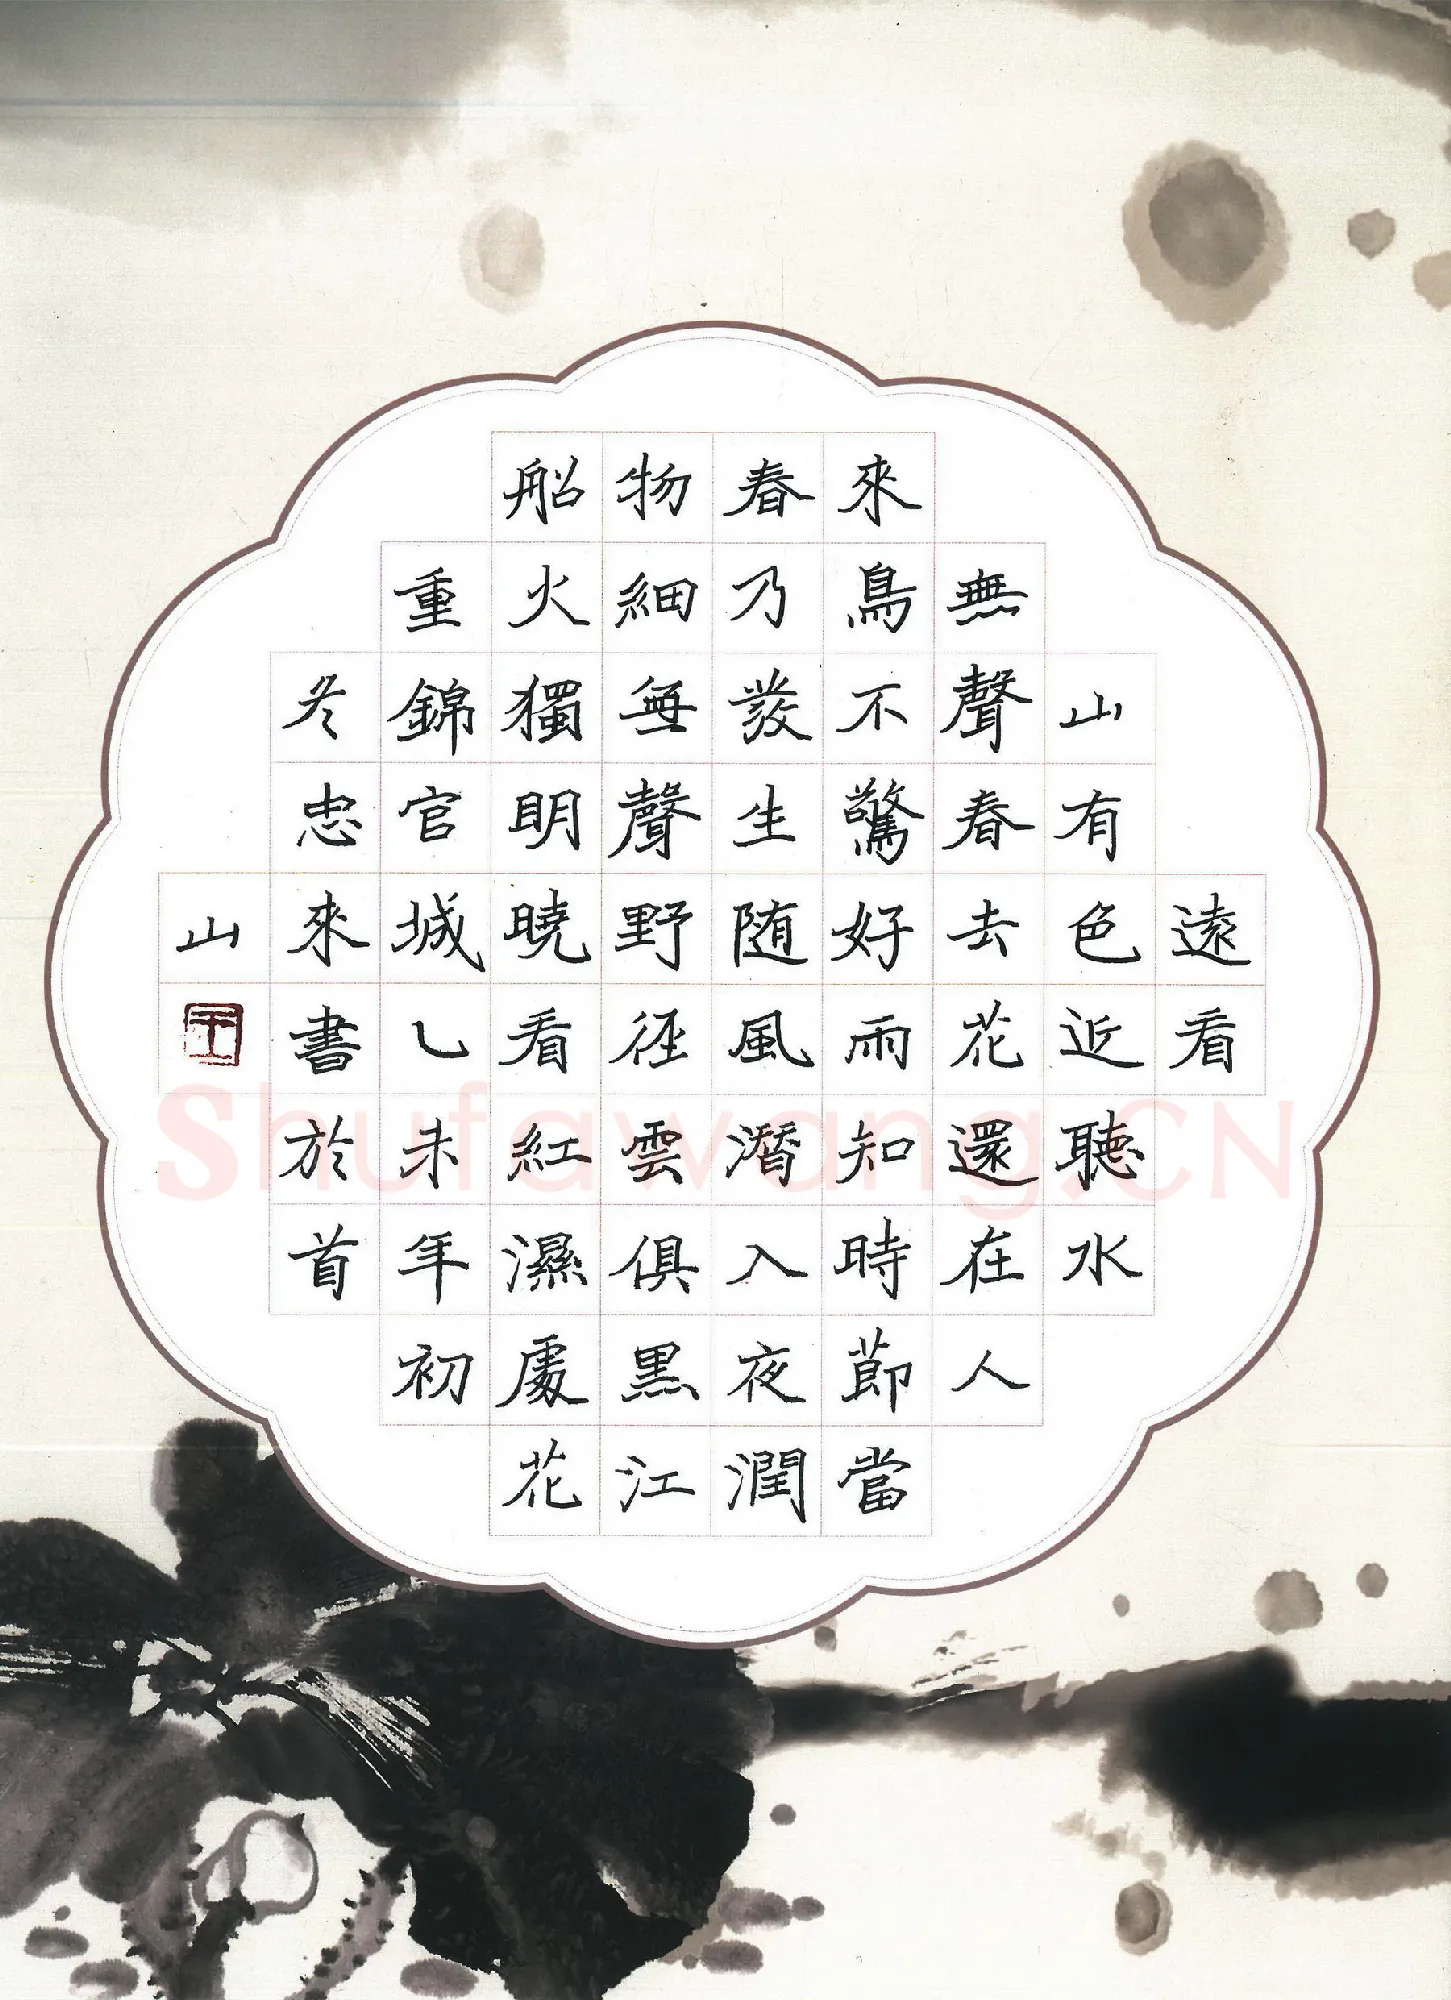 遠看
山有色近聽水
無聲春去花還在人
來鳥不驚好雨知時節當
春乃發生随風潛入夜潤
物細無聲野徑雲俱黑江
船火獨明曉看紅濕處花
重錦官城乚未年初
冬忠來書於首
山
Shufawang.CN